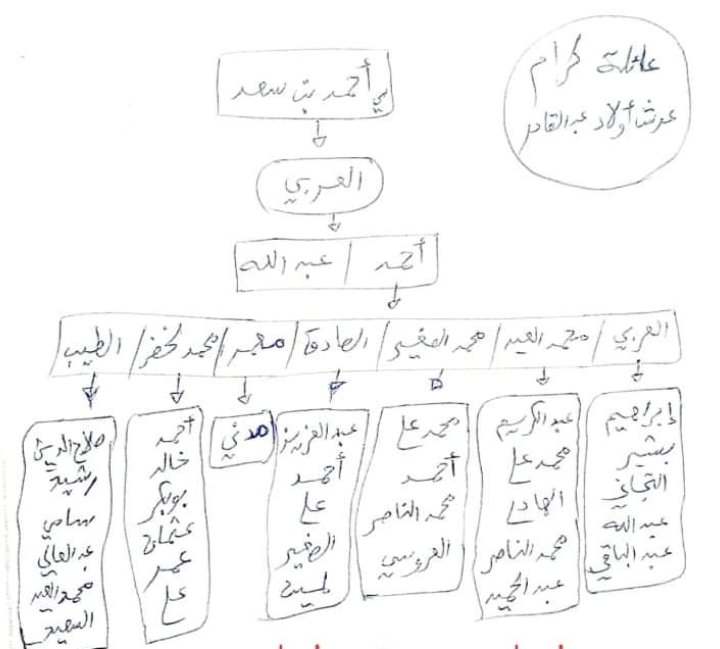 عائلة كرام
عرش أولاد عبد القادر
سي أحمد بن سعد
العربي
أحمد / عبد الله
العربي / محمد العيد / محمد الصغير / الصادق / محمد / محمد لخضر / الطيب
إبراهيم
بشير
التجاني
عبد الله
عبد الباقي
عبد الكريم
محمد علي
الهادي
محمد الناصر
عبد الحميد
محمد علي
أحمد
محمد الناصر
العروسي
عبد العزيز
أحمد
علي
الصغير
لمين
مدني
أحمد
خالد
بوبكر
عثمان
عمر
علي
صلاح الدين
رشيد
سامي
عبد العالي
محمد العيد
السعيد